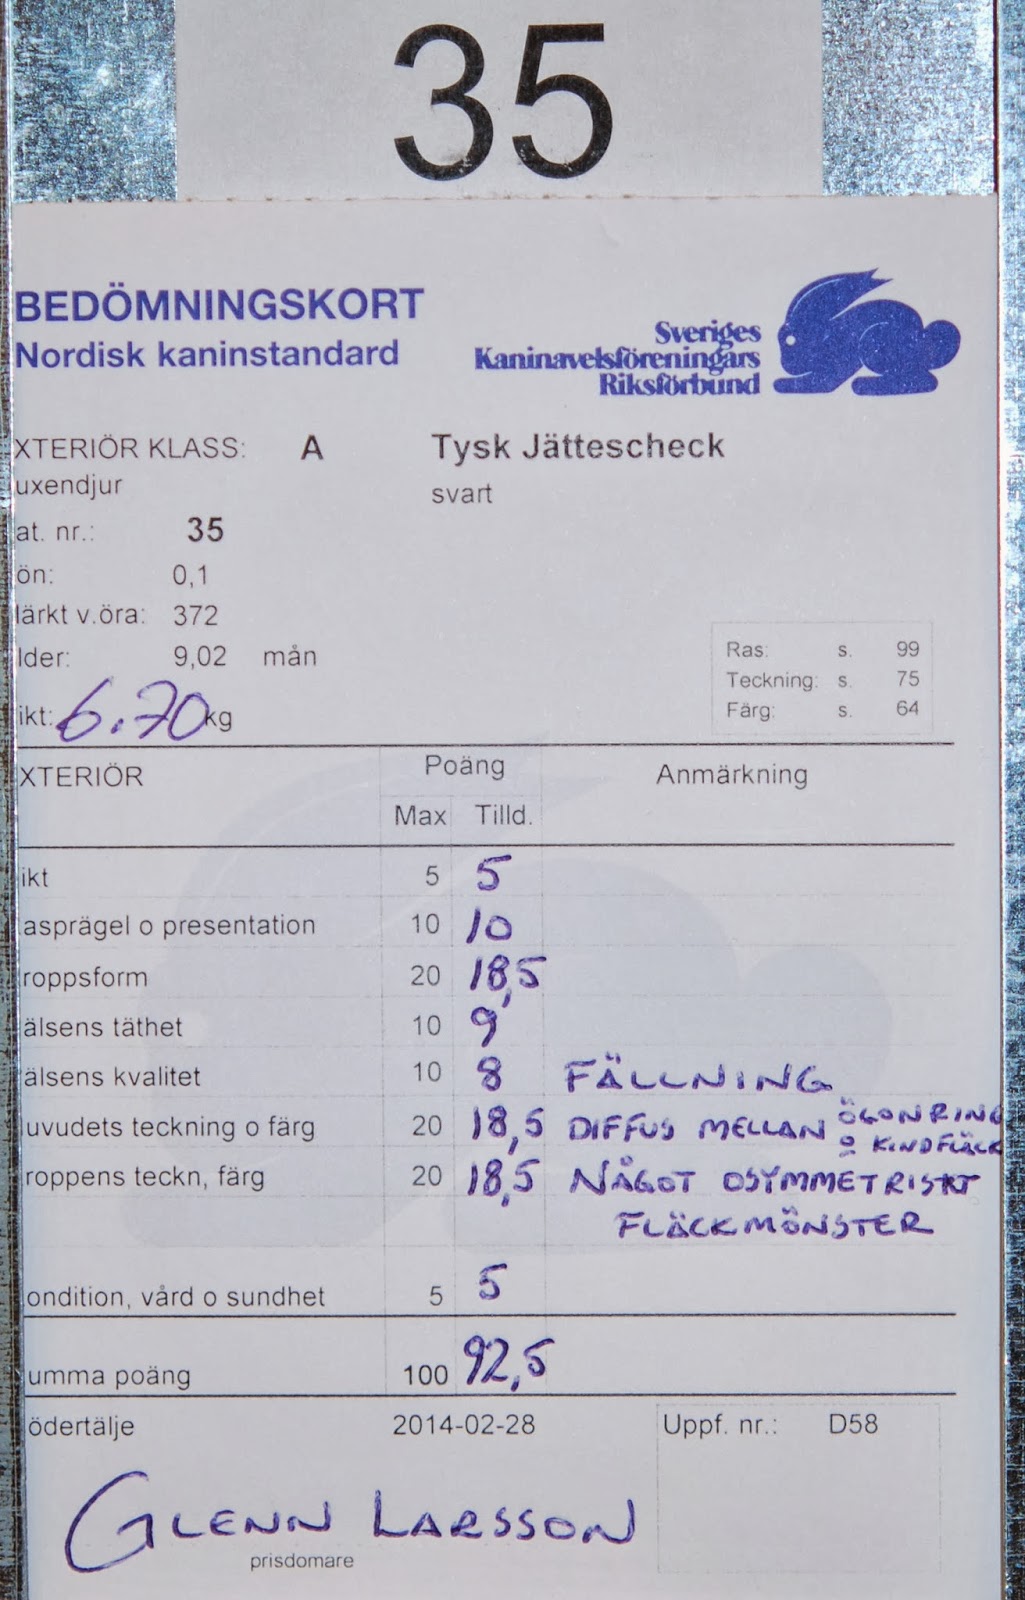 35
BEDÖMNINGSKORT
Nordisk kaninstandard
Sveriges
Kaninavelsföreningars
Riksförbund
XTERIÖR KLASS: A Tysk Jättescheck
uxendjur svart
at. nr.: 35
ön: 0,1
lärkt v.öra: 372
lder: 9,02 mån
ikt: 6.70 kg
Ras: s. 99
Teckning: s. 75
Färg: s. 64
XTERIÖR Poäng Anmärkning
Max Tilld.
ikt 5 5
asprägel o presentation 10 10
roppsform 20 18,5
älsens täthet 10 9
älsens kvalitet 10 8 FÄLLNING
uvudets teckning o färg 20 18,5 DIFFUS MELLAN ÖGONRING
O KINDFLÄCK
roppens teckn, färg 20 18,5 NÅGOT OSYMMETRISKT
FLÄCKMÖNSTER
ondition, vård o sundhet 5 5
umma poäng 100 92,5
ödertälje 2014-02-28 Uppf. nr.: D58
GLENN LARSSON
prisdomare